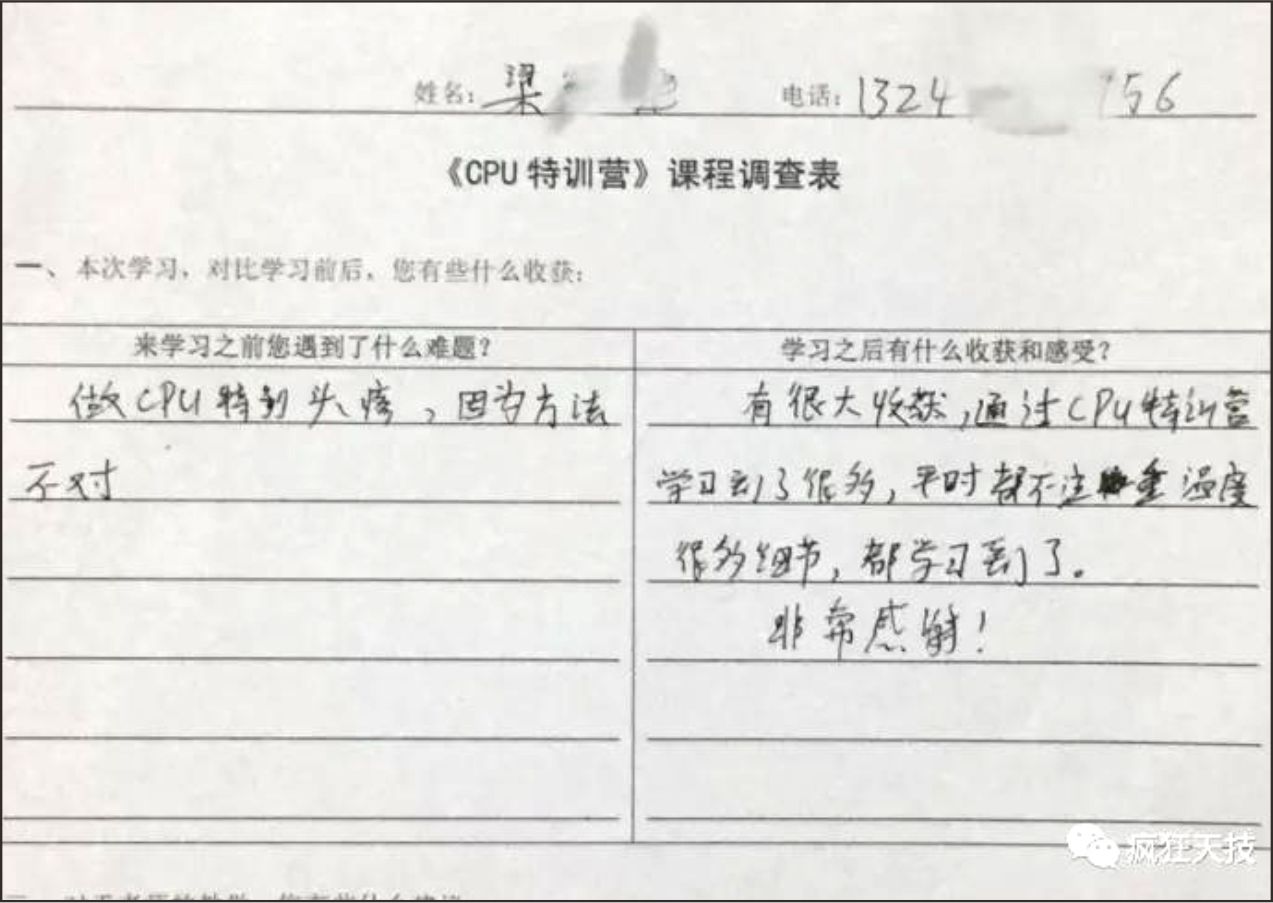 姓名:梁 电话:1324 156
《CPU特训营》课程调查表
一、本次学习，对比学习前后，您有些什么收获：
来学习之前您遇到了什么难题？
做CPU特别头疼，因为方法
不对
学习之后有什么收获和感受？
有很大收获，通过CPU特训营
学习到了很多，平时都不注重温度
很多细节，都学习到了。
非常感谢！
疯狂天技